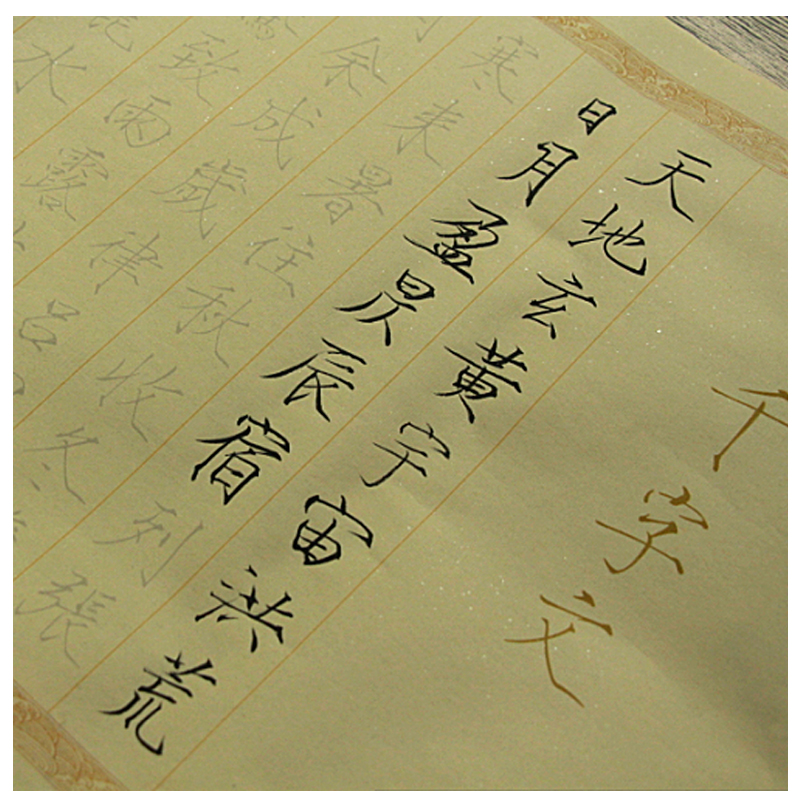 千字文
天地玄黄宇宙洪荒
日月盈昃辰宿列張
寒来暑往秋收冬
余成歲律呂
致雨露
水